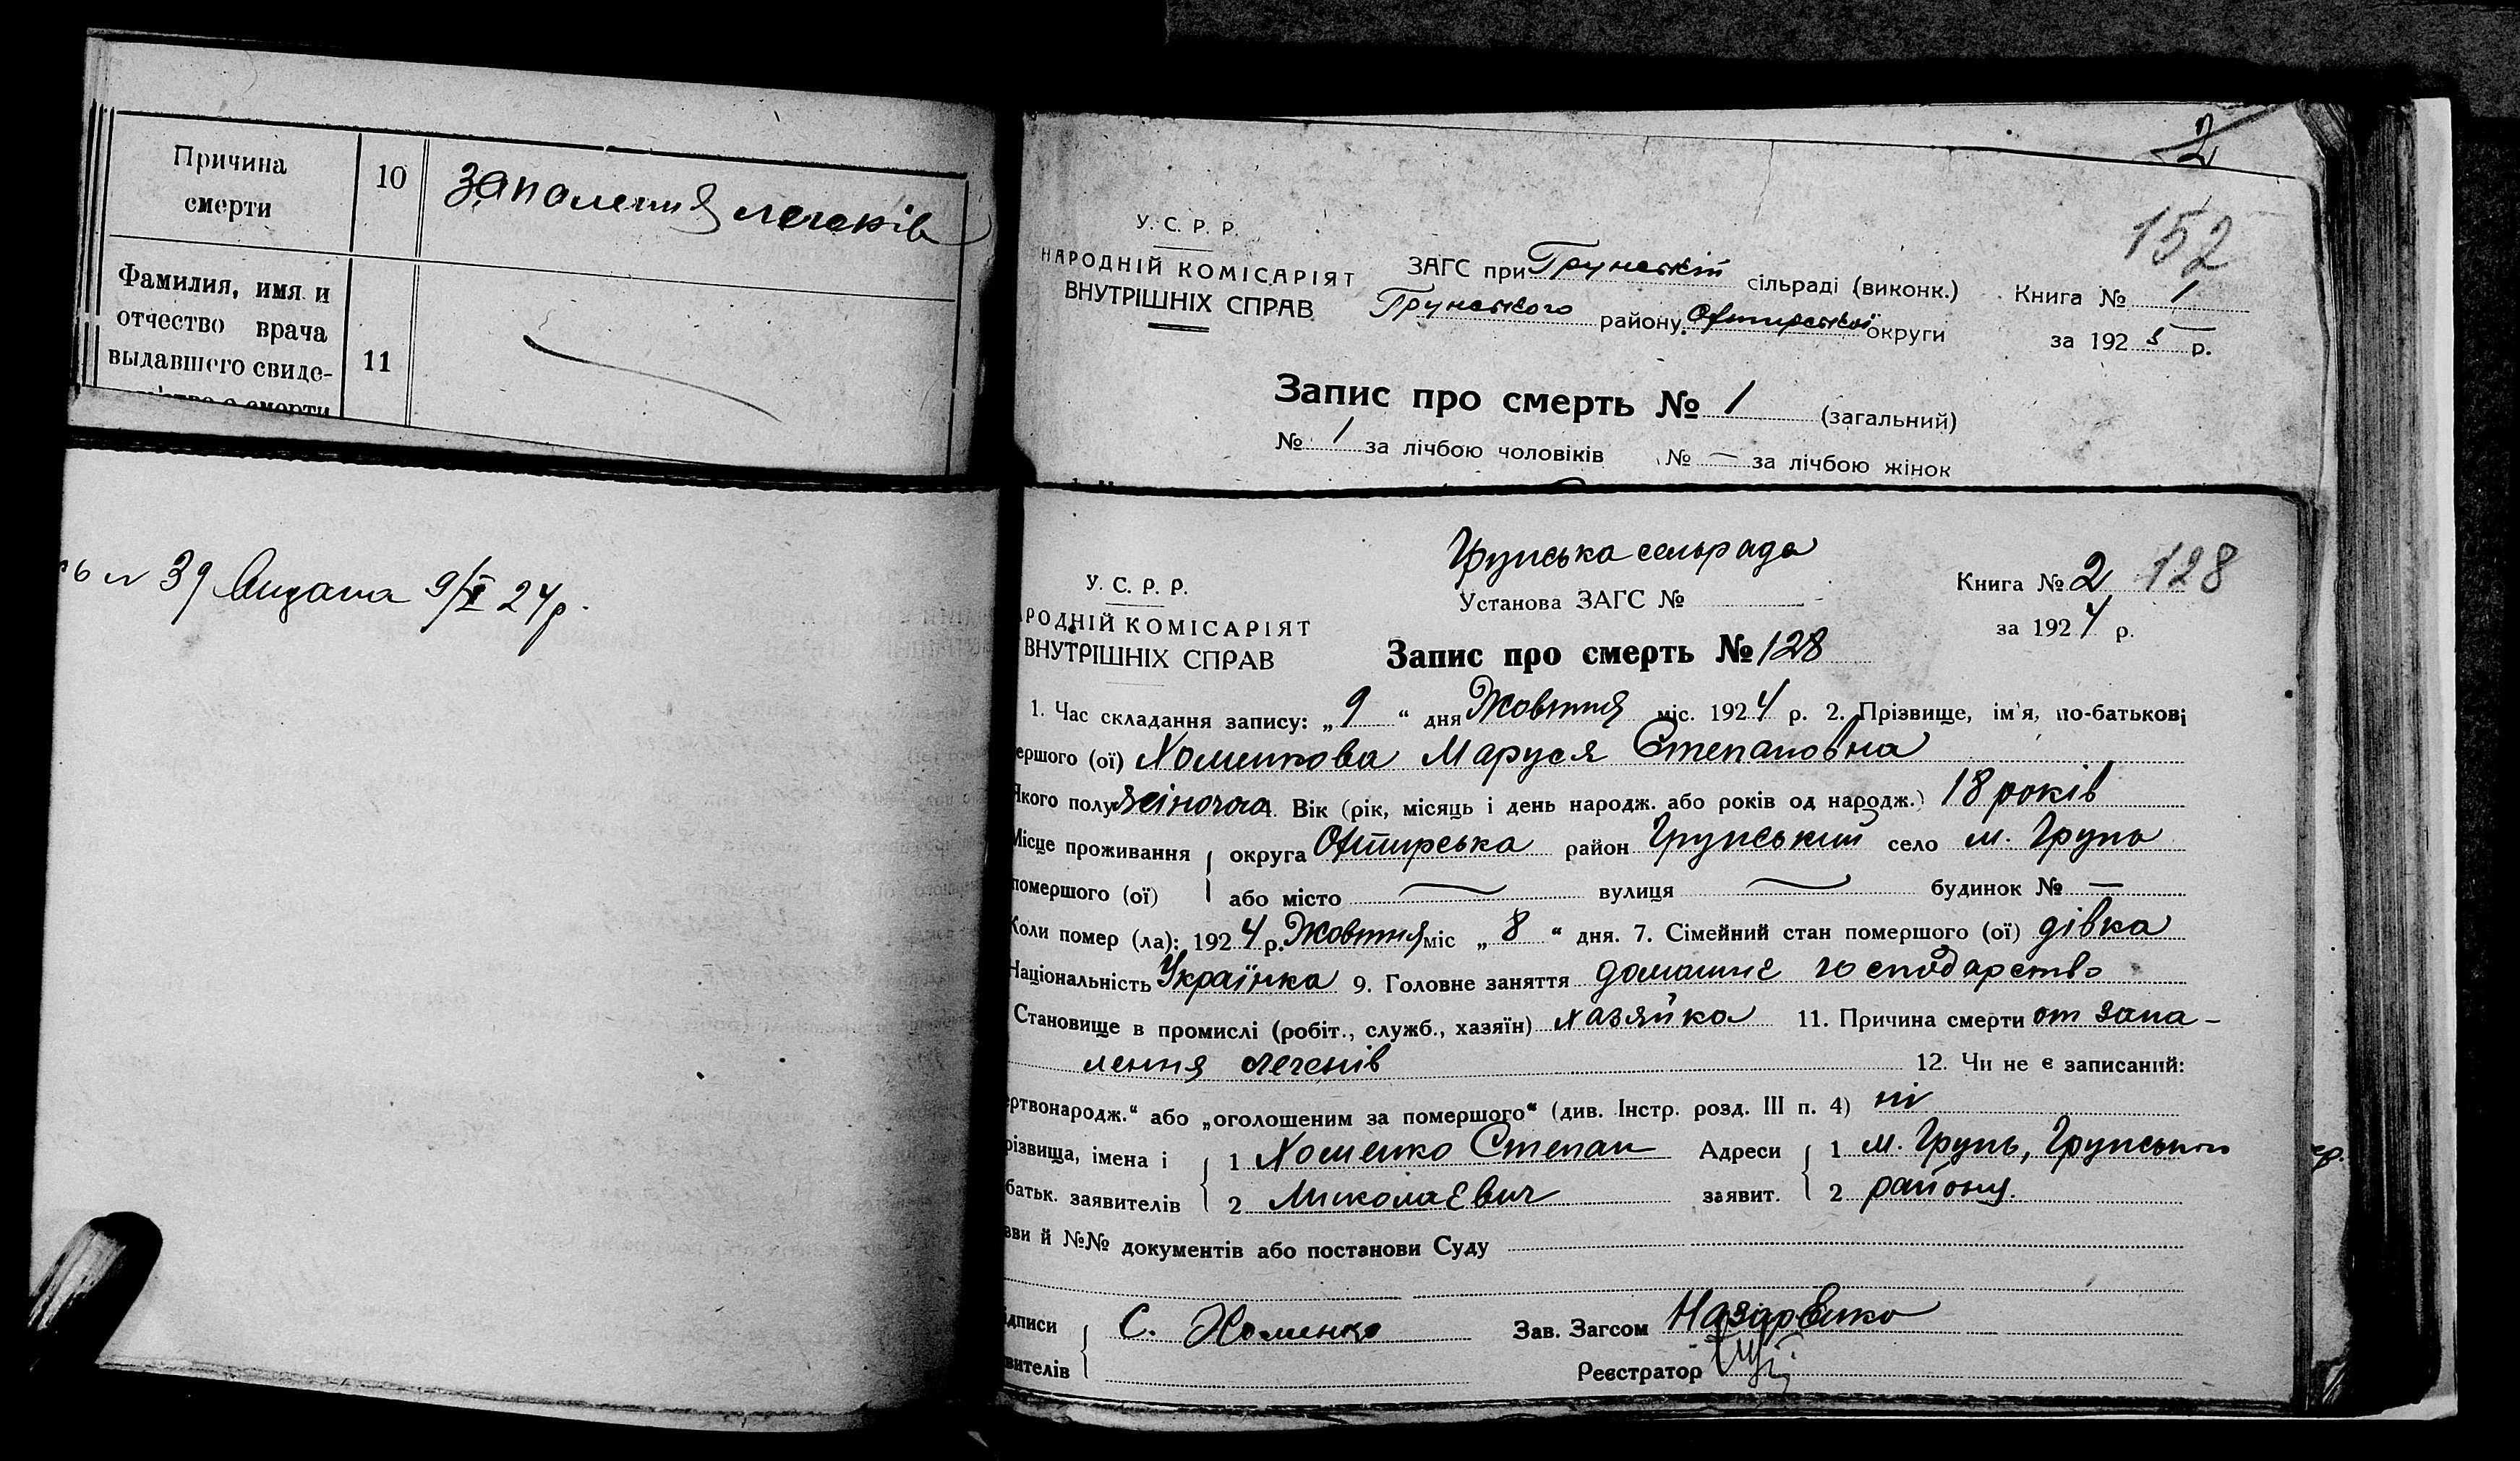 Причина
смерти
10
запаления легенів
Фамилия, имя и
отчество врача
выдавшего свиде-
11
№ 39 Видана 9/X 24 р.
2
152
У. С. Р. Р.
НАРОДНІЙ КОМІСАРІЯТ
ВНУТРІШНІХ СПРАВ
ЗАГС при Грунській сільраді (виконк.)
Грунського району Охтирської округи
Книга № 1
за 1925 р.
Запис про смерть № 1 (загальний)
№ 1 за лічбою чоловіків № — за лічбою жінок
Грунська сельрада
У. С. Р. Р.
РОДНІЙ КОМІСАРІЯТ
ВНУТРІШНІХ СПРАВ
Установа ЗАГС №
Книга № 2 128
за 1924 р.
Запис про смерть № 128
1. Час складання запису: „ 9 “ дня Жовтня міс. 1924 р. 2. Прізвище, ім'я, по-батькові
ершого (ої) Хоменкова Маруся Степановна
Якого полу жіночого 4. Вік (рік, місяць і день народж. або років од народж.) 18 років
Місце проживання округа Охтирська район Грунський село м. Грунь
помершого (ої) або місто — вулиця — будинок № —
Коли помер (ла): 1924 р. Жовтня міс „ 8 “ дня. 7. Сімейний стан помершого (ої) дівка
Національність Українка 9. Головне заняття домашнє господарство
Становище в промислі (робіт., служб., хазяїн) хазяйка 11. Причина смерти от запа-
лення легенів 12. Чи не є записаний:
ертвонародж.“ або „оголошеним за помершого“ (див. Інстр. розд. III п. 4) ні
різвища, імена і 1 Хоменко Степан Адреси 1 м. Грунь, Грунського
батьк. заявителів 2 Миколаєвич заявит. 2 району.
зви й №№ документів або постанови Суду
дписи С. Хоменко Зав. Загсом Назаренко
вителів Реєстратор